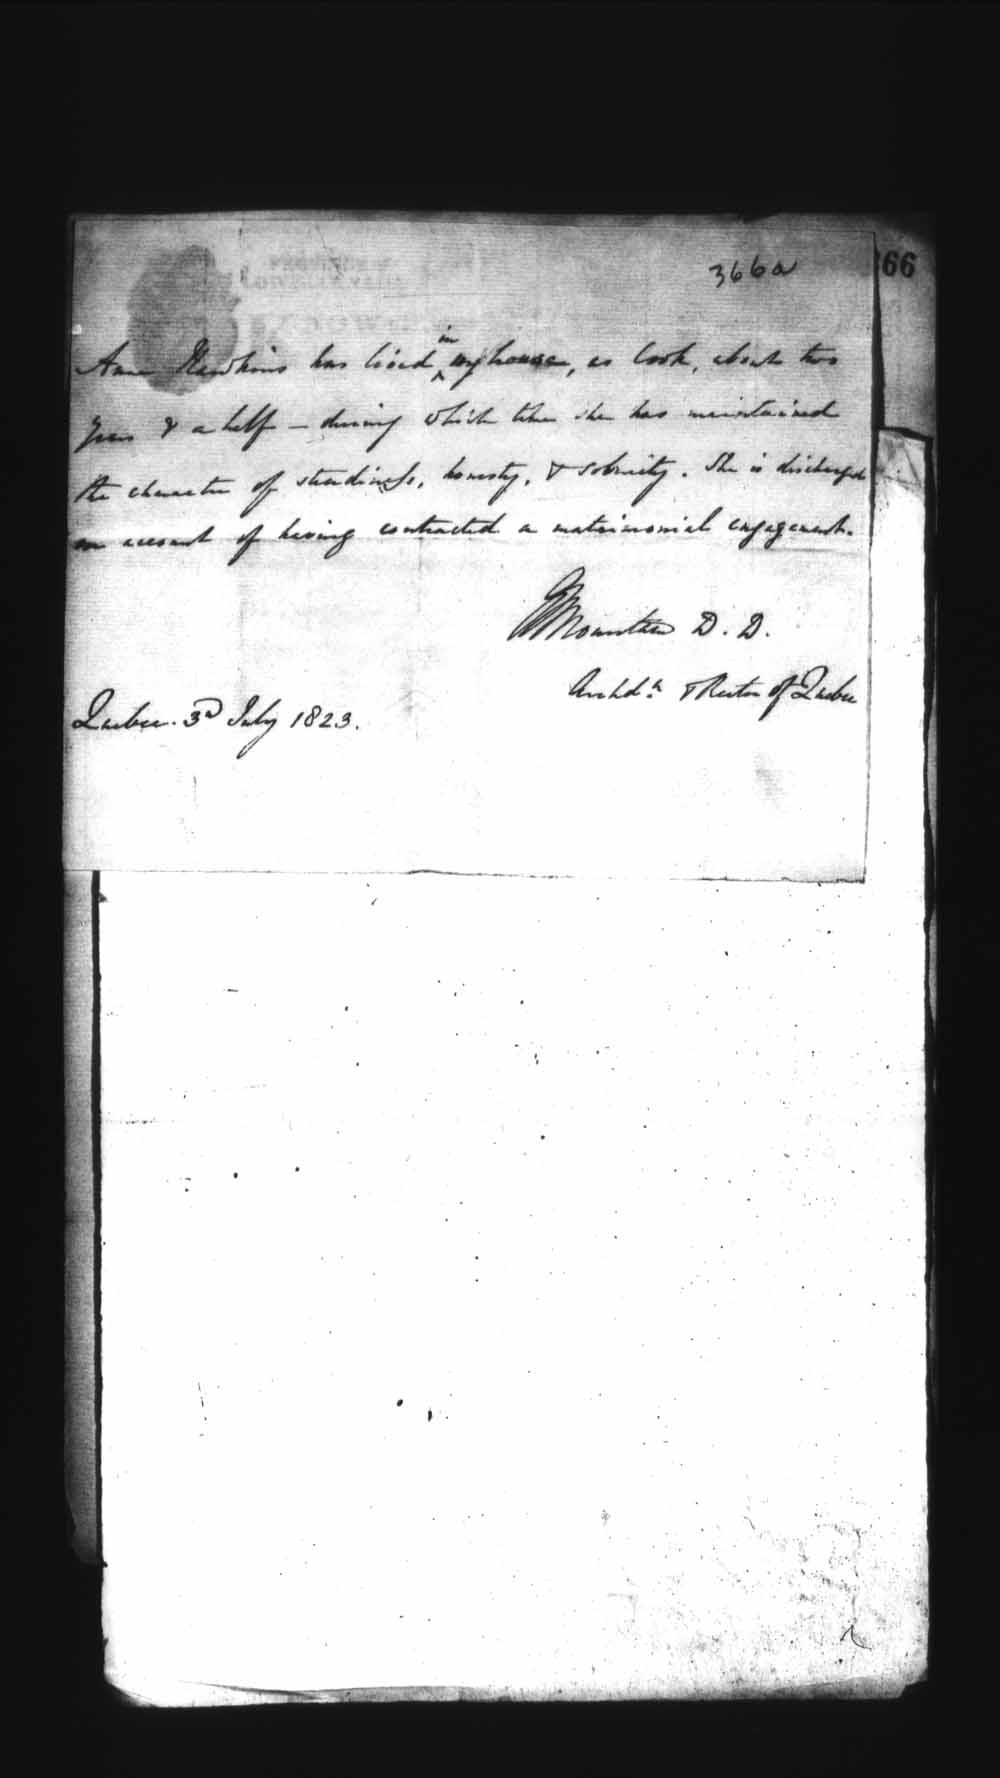 366a
66
Anne Hawkins has lived in my house, as Cook, about two
years & a half – during which time she has maintained
the character of steadiness, honesty, & sobriety. She is discharged
on account of having contracted a matrimonial engagement.
GJMountain D. D.
Archd.n & Rector of Quebec
Quebec. 3d July 1823.